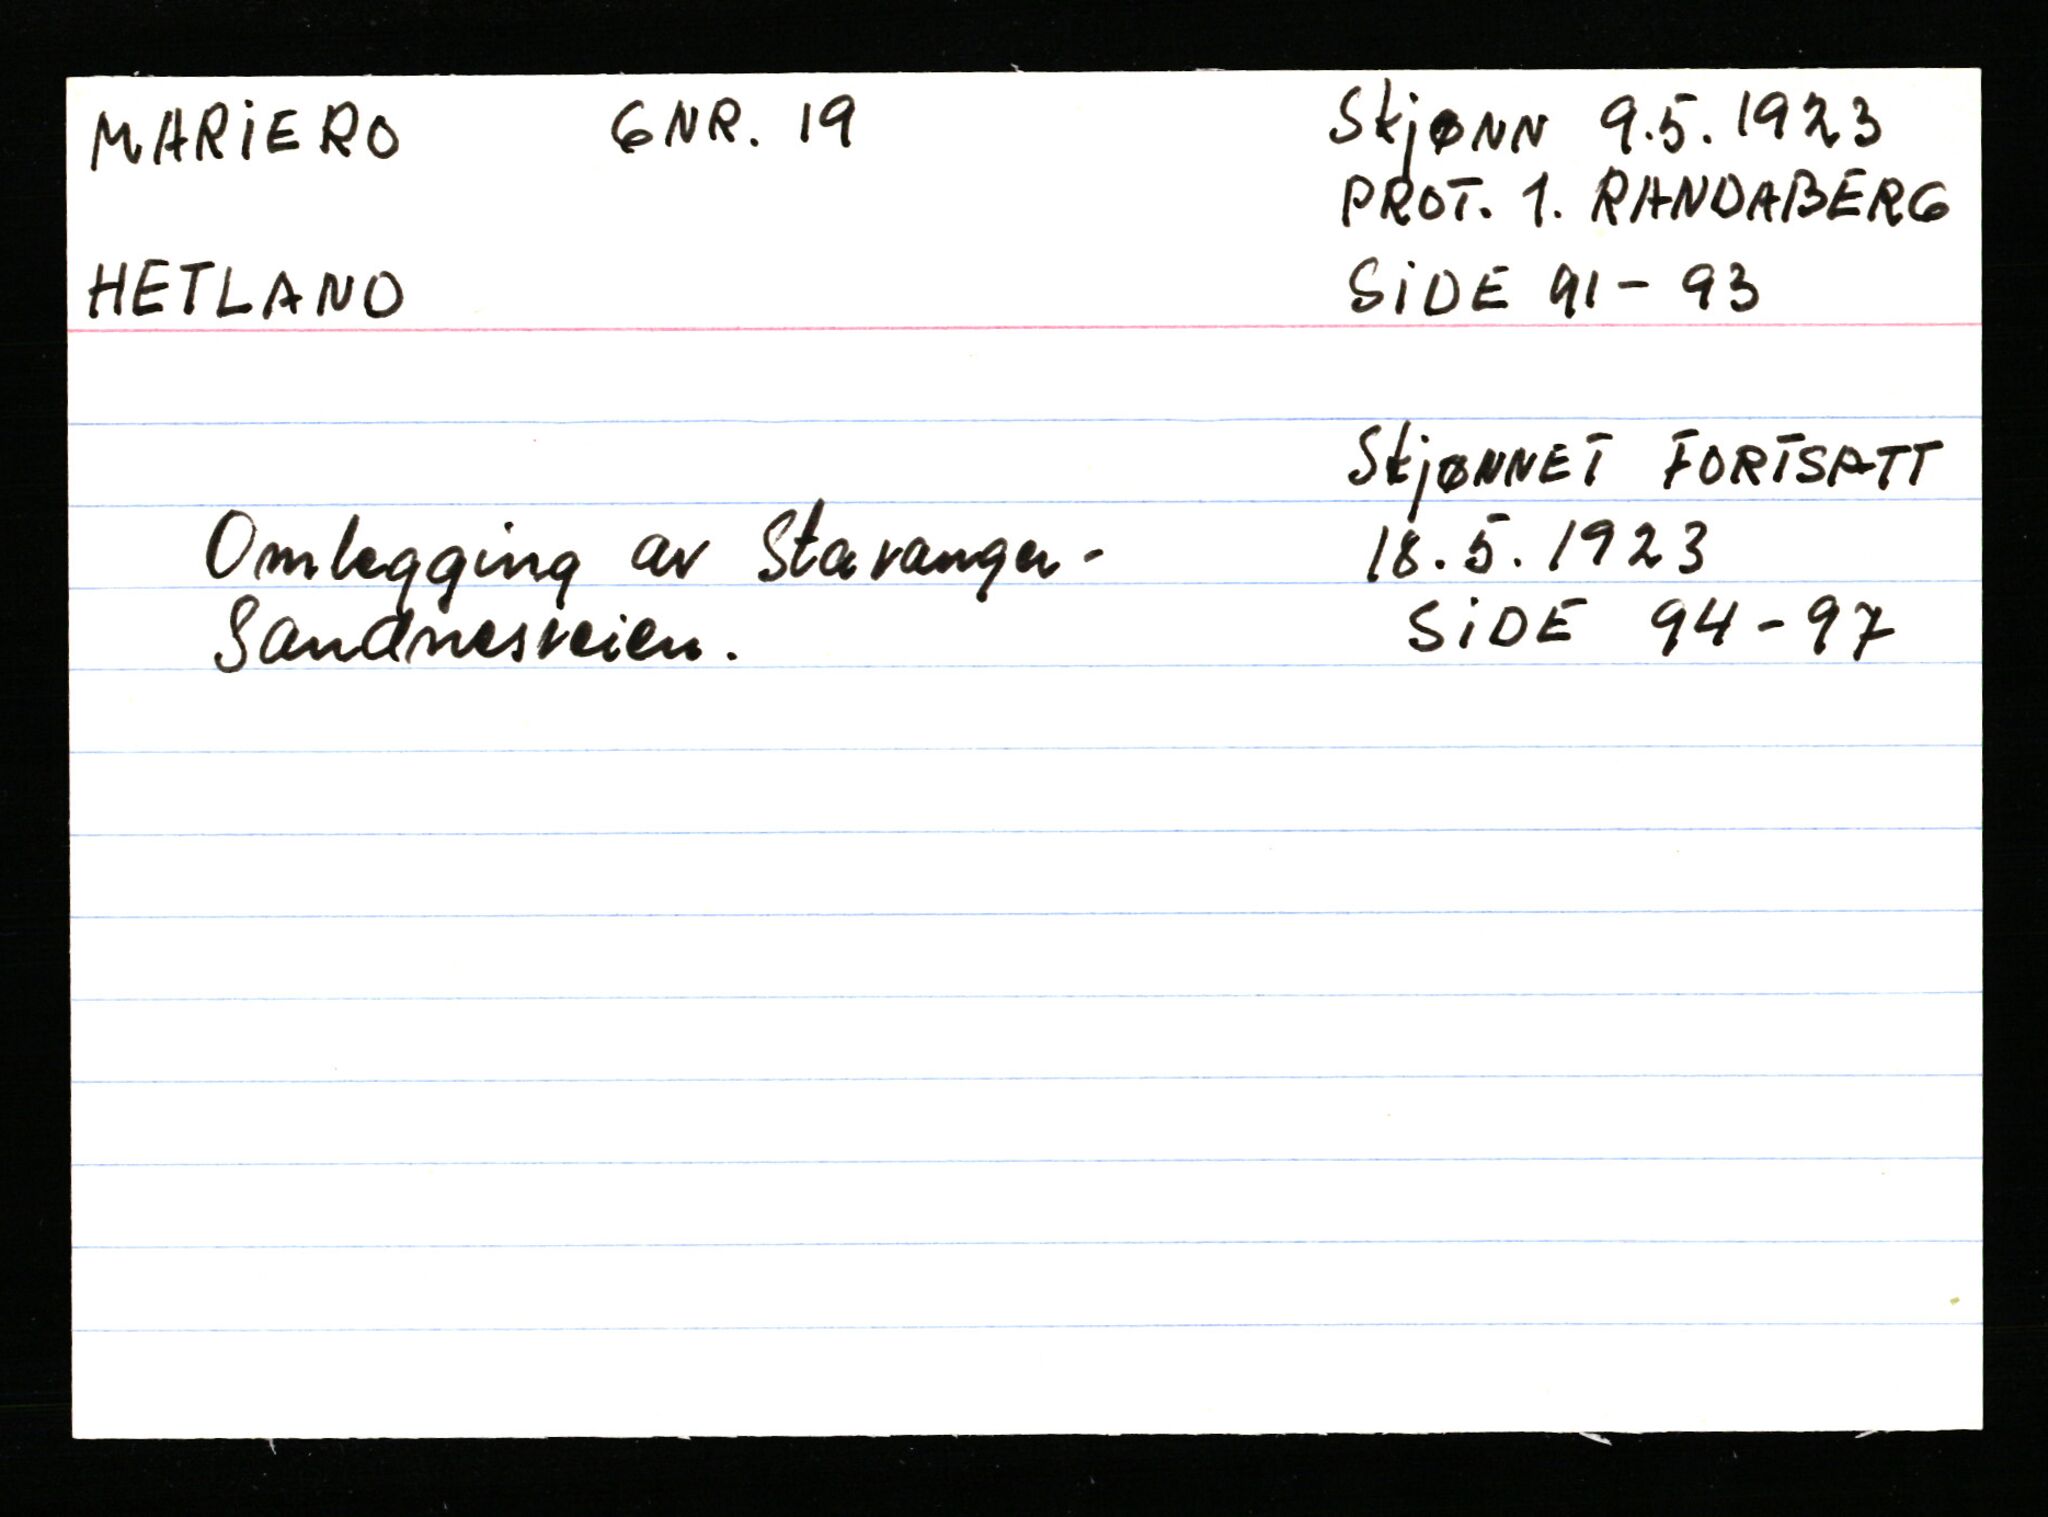 MARiERO GNR. 19 Skjønn 9.5.1923
PROT. 1. RANDABERG
HETLAND SiDE 91-93
SkjøNNET FORTSATT
Omlegging av Stavanger- 18.5.1923
Sandnesveien. SiDE 94-97